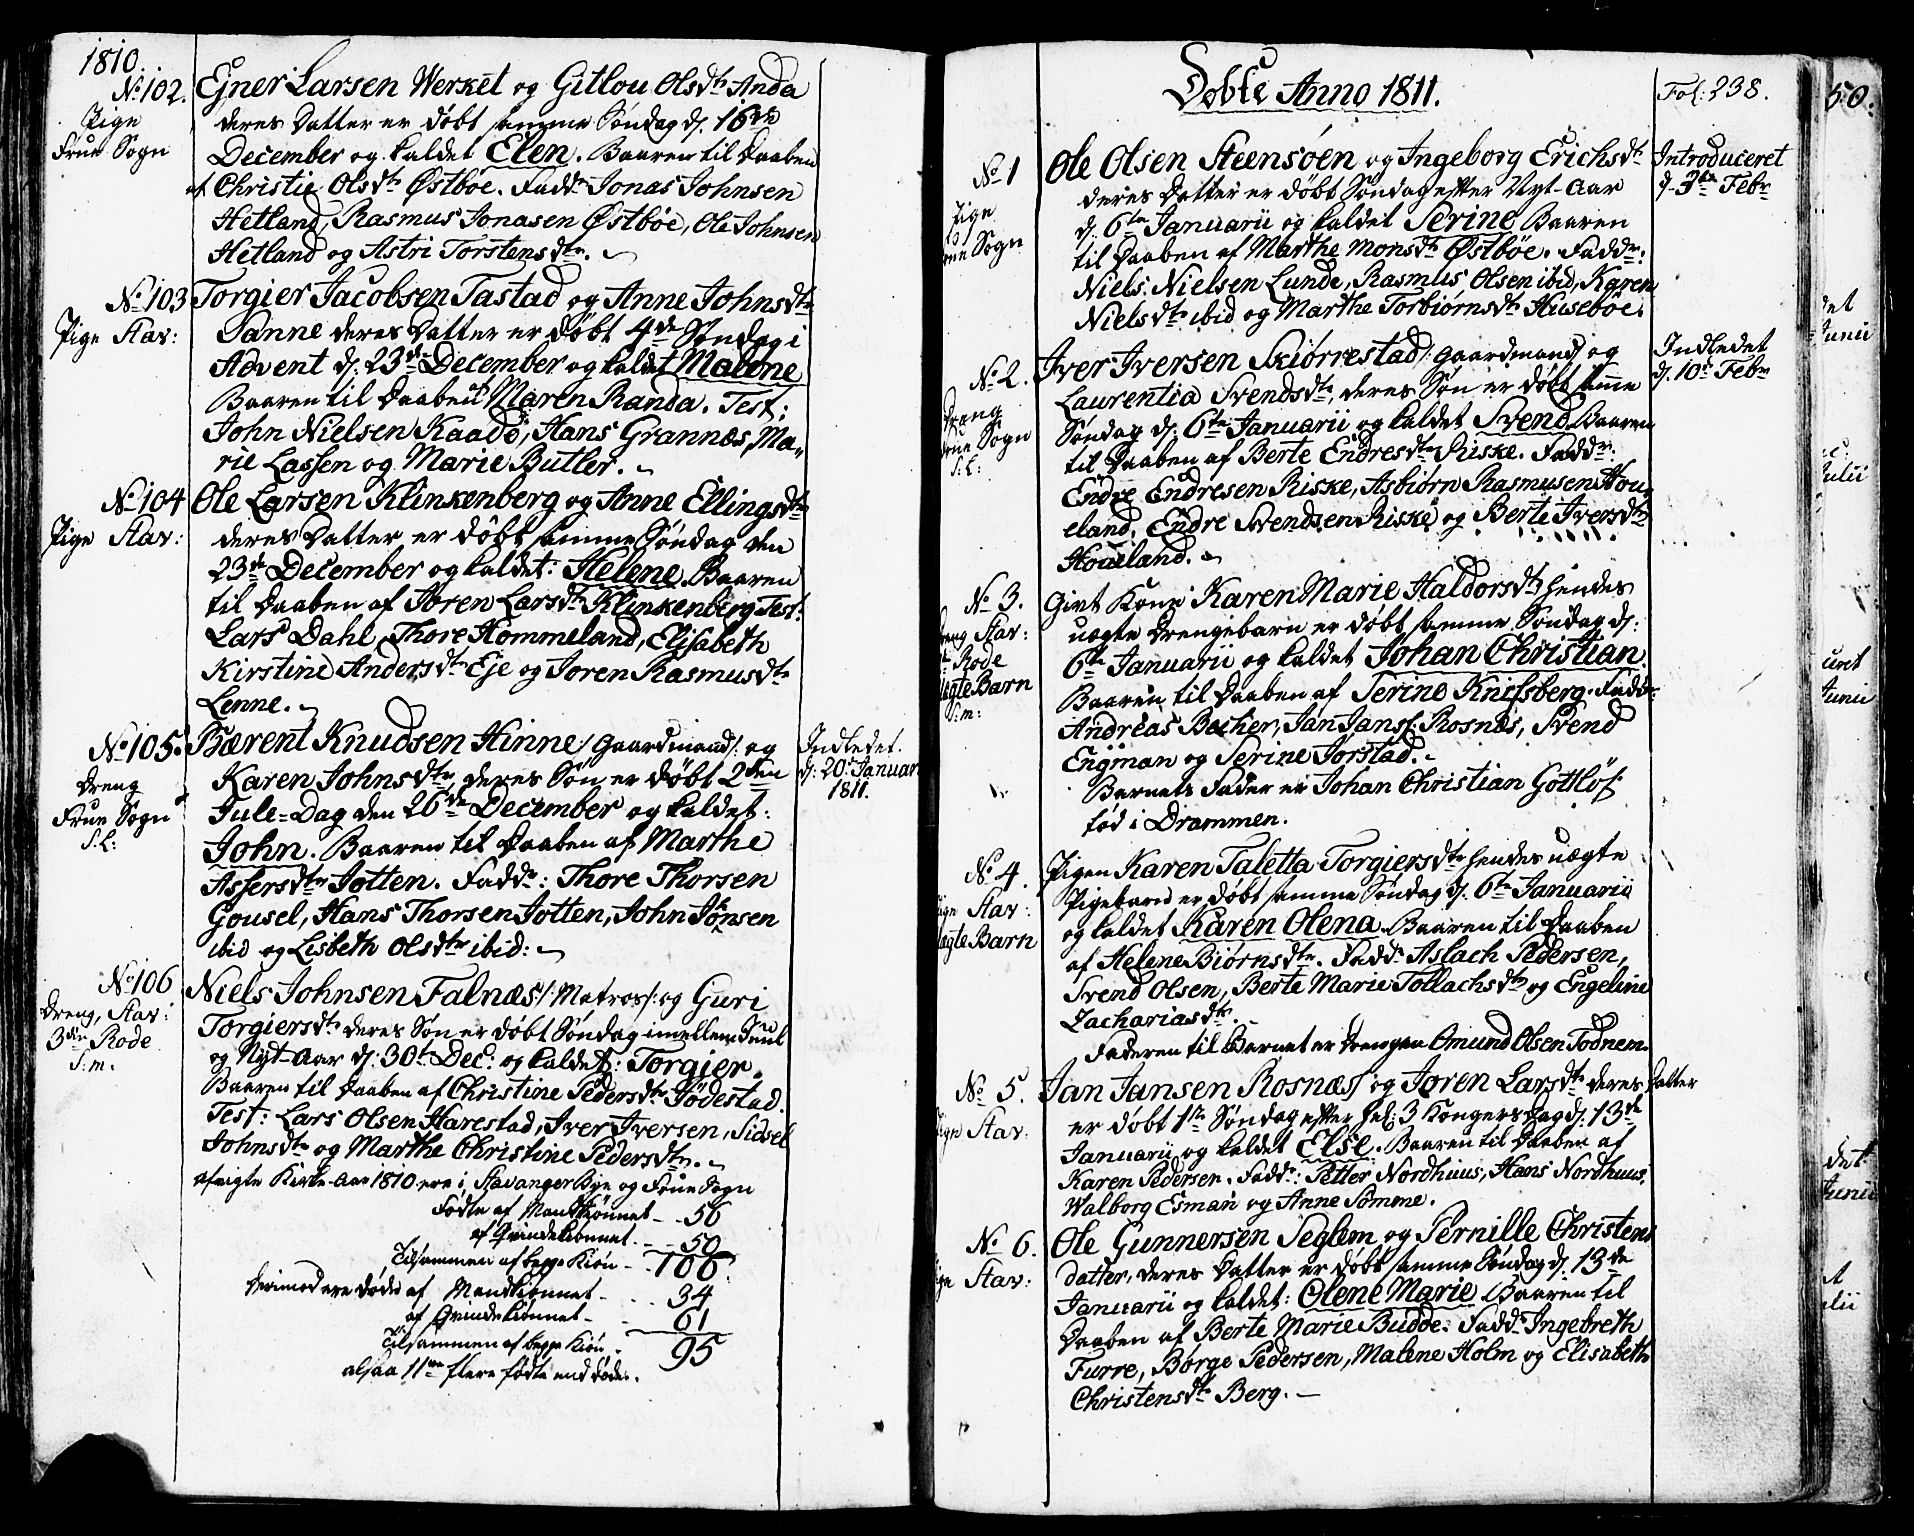 1810.
No 102.
Pige
Frue Sogn
Ejner Larsen Werket og Gitlou Olsdtr Anda
deres Datter er døbt samme Søndag d. 16de
December og kaldet Elen. Baaren til Daaben
af Christie Olsdtr Østbøe. Fadd: Jonas Johnsen
Hetland, Rasmus Jonasen Østbøe, Ole Johnsen
Hetland og Astri Torstensdtr.
No 103
Pige Stav:
Torgier Jacobsen Tastad og Anne Johnsdtr
Sanne deres Datter er døbt 4de Søndag i
Advent d: 23de December og kaldet Malene
Baaren til Daaben Maren Randa. Test:
John Nielsen Kaade, Hans Grannæs, Ma-
rie Lassen og Marie Butler.
No 104
Pige Stav:
Ole Larsen Klinkenberg og Anne Ellingsdtr
deres Datter er døbt samme Søndag den
23de December og kaldet: Helene. Baaren
til Daaben af Joren Larsdtr Klinkenberg. Test:
Lars Dahl, Thore Hommeland, Elisabeth
Kirstine Andersdtr Eje og Joren Rasmusdtr
Lenne.
No 105.
Dreng
Frue Sogn
S. L:
Bærent Knudsen Hinne /: Gaardmand :/ og
Karen Johnsdtr, deres Søn er døbt 2den
Jule-Dag den 26de December og kaldet:
John. Baaren til Daaben af Marthe
Assersdtr Jotten. Fadd: Thore Thorsen
Gousel, Hans Thorsen Jotten, John Jonsen
ibid og Lisbeth Olsdtr ibid:
Indledet.
d: 20 Januar
1811.
No 106
Dreng, Stav:
3die Rode
S: m.
Niels Johnsen Falnæs /: Matros :/ og Guri
Torgiersdtr deres Søn er døbt Søndag imellem Juul
og Nyt-Aar d: 30t Dec: og kaldet: Torgier.
Baaren til Daaben af Christine Pedersdtr Jødestad.
Test: Lars Olsen Harestad, Iver Iversen, Sidsel
Johnsdtr og Marthe Christine Pedersdtr.
Afvigte Kirke-Aar 1810 ere i Stavanger Bye og Frue Sogn
Fødte af Mandkiønnet - 56
af Qvindekiønnet - 50
Tilsammen af begge Kiøn - 106.
Derimod ere døde af Mandkiønnet - 34
af Qvindekiønnet - 61
Tilsammen af begge Kiøn - 95
altsaa 11 flere fødte end døde.
Døbte Anno 1811.
Fol: 238.
No 1
Pige
Sogn
Ole Olsen Steensøen og Ingeborg Erichsdtr
deres Datter er døbt Søndag efter Nyt-Aar
d. 6te Januarii og kaldet Serine Baaren
til Daaben af Marthe Monsdtr Østbøe. Fadd:
Niels Nielsen Lunde, Rasmus Olsen ibid, Karen
Nielsdtr ibid og Marthe Torbiornsdtr Husebøe.
Introduceret
d. 3de Febr
No 2.
Dreng
Sogn
S. L:
Iver Iversen Skiørrestad /: Gaardmand :/ og
Laurentia Svendsdtr, deres Søn er døbt samme
Søndag d. 6te Januarii og kaldet Svend. Baaren
til Daaben af Berte Endresdtr Riske. Fadd:
Endre Endresen Riske, Asbiørn Rasmusen Hou-
eland, Endre Svendsen Riske og Berte Iversdtr
Houeland.
Indledet
d. 10 Febr
No 3.
Dreng Stav:
Rode
Uægte Barn
S: m:
Givt Kone Karen Marie Haldorsdtr hendes
uægte Drengebarn er døbt samme Søndag d:
6te Januarii og kaldet Johan Christian.
Baaren til Daaben af Serine Knifsberg. Fadd:
Andreas Bacher, Jan Jans: Rosnæs, Svend
Engman og Serine Jørstad.
Barnets Fader er Johan Christian Gottløf
fød i Drammen.
No 4.
Pige Stav:
Uægte Barn
Pigen Karen Taletta Torgiersdtr hendes uægte
Pigebarn er døbt samme Søndag d. 6te Januarii
og kaldet Karen Olena. Baaren til Daaben
af Helene Biørnsdtr. Fadd: Aslach Pedersen,
Svend Olsen, Berte Marie Tollachsdtr og Engeline
Zachariasdtr.
Faderen til Barnet er Drengen Omund Olsen Todnem.
No 5.
Pige Stav:
Jan Jansen Rosnæs og Joren Larsdtr deres Datter
er døbt 1ste Søndag efter hel: 3 Kongers Dag d. 13de
Januarii og kaldet Else. Baaren til Daaben af
Karen Pedersen. Fadd: Petter Nordhuus, Hans Nordhuus,
Walborg Esman og Anne Sømme.
No 6.
Pige Stav:
Ole Gunnersen Seglem og Pernille Christens
datter, deres Datter er døbt samme Søndag d. 13de
Januarii og kaldet: Olene Marie Baaren til
Daaben af Berte Marie Budde. Fadd: Ingebreth
Furre, Børge Pedersen, Malene Holm og Elisabeth
Christensdtr Berg.
50.